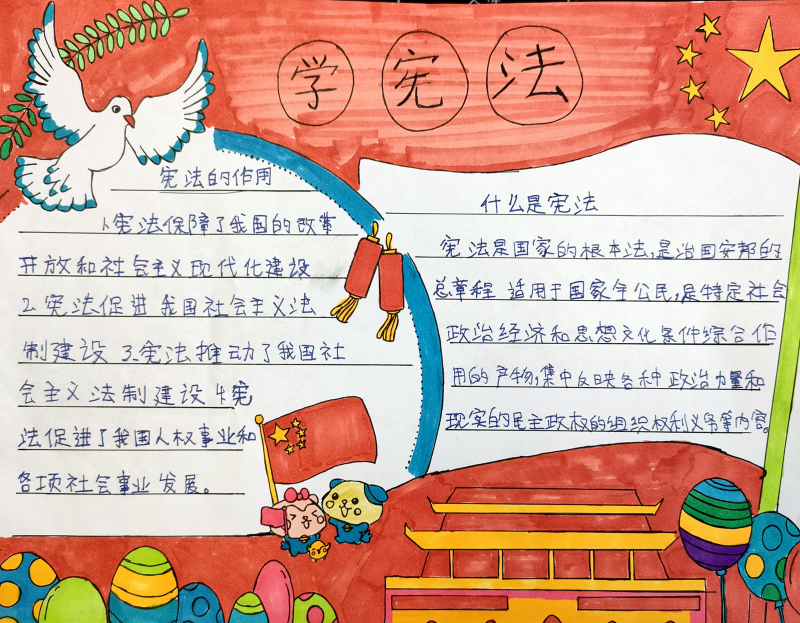 学宪法
宪法的作用
1.宪法保障了我国的改革
开放和社会主义现代化建设
2.宪法促进我国社会主义法
制建设 3.宪法推动了我国社
会主义法制建设 4.宪
法促进了我国人权事业和
各项社会事业发展。
什么是宪法
宪法是国家的根本法,是治国安邦的
总章程 适用于国家全公民,是特定社会
政治经济和思想文化条件综合作
用的产物,集中反映各种政治力量和
现实的民主政权的组织权利义务等内容。